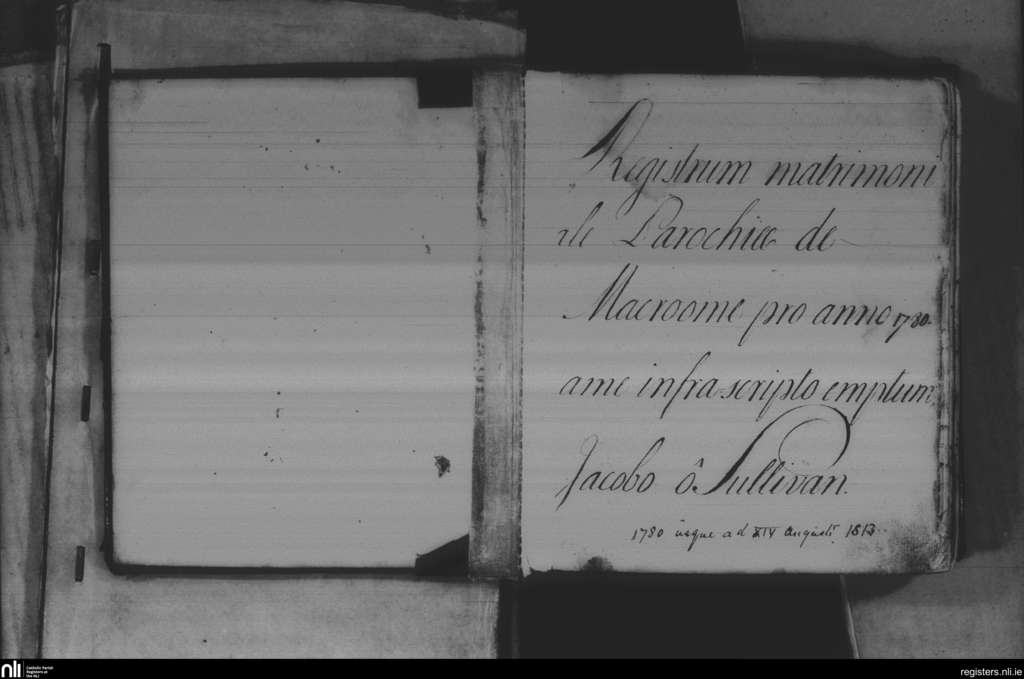 Registrum matrimoni
ale Parochiæ de
Macroome pro anno 1780
ame infra scripto emptum
Jacobo ô Sullivan.
1780 usque ad XIV Augusti 1813
nli
Catholic Parish
Registers at
the NLI
registers.nli.ie